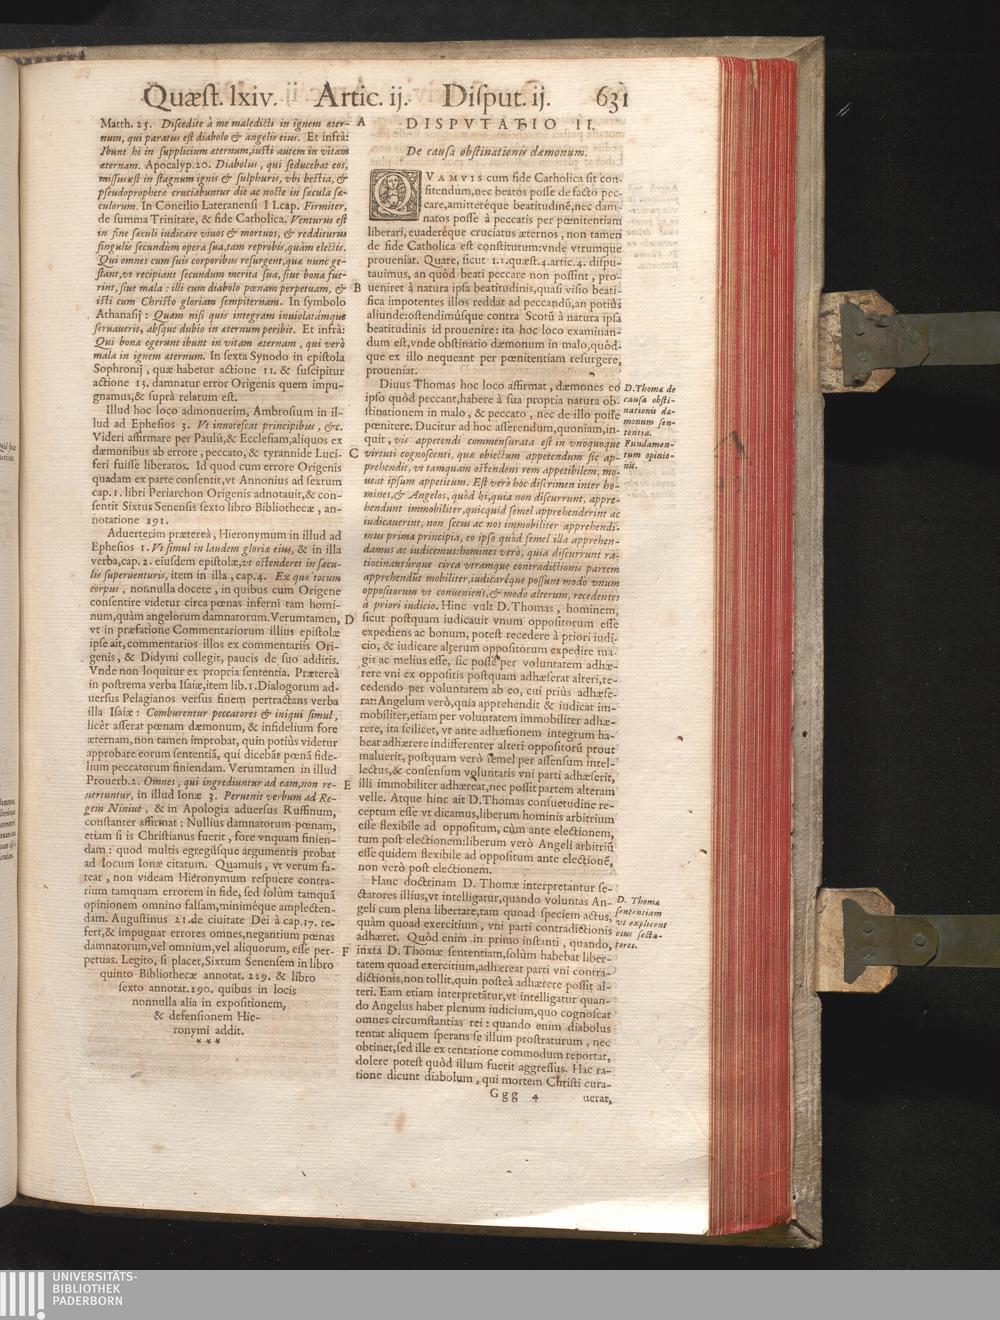 Quæſt. lxiv. Artic. ij. Diſput. ij. 631
Matth. 25. Diſcedite à me maledicti in ignem æter-
num, qui paratus eſt diabolo & angelis eius. Et infrà:
Ibunt hi in ſupplicium æternum, iuſti autem in vitam
æternam. Apocalyp. 20. Diabolus, qui ſeducebat eos,
miſſus eſt in ſtagnum ignis & ſulphuris, vbi beſtia, &
pſeudopropheta cruciabuntur die ac nocte in ſæcula ſæ-
culorum. In Concilio Lateranenſi II.cap. Firmiter,
de ſumma Trinitate, & fide Catholica. Venturus eſt
in fine ſæculi iudicare viuos & mortuos, & redditurus
ſingulis ſecundùm opera ſua,tam reprobis,quàm electis.
Qui omnes cum ſuis corporibus reſurgent,quæ nunc ge-
ſtant,vt recipiant ſecundum merita ſua, ſiue bona fue-
rint, ſiue mala : illi cum diabolo pœnam perpetuam, &
iſti cum Chriſto gloriam ſempiternam. In ſymbolo
Athanaſij : Quam niſi quis integram inuiolatámque
ſeruauerit, abſque dubio in æternum peribit. Et infrà:
Qui bona egerunt ibunt in vitam æternam, qui verò
mala in ignem æternum. In ſexta Synodo in epiſtola
Sophronij, quæ habetur actione 11. & ſuſcipitur
actione 13. damnatur error Origenis quem impu-
gnamus,& ſuprà relatum eſt.
Illud hoc loco admonuerim, Ambroſium in il-
lud ad Epheſios 3. Vt innoteſcat principibus, &c.
Videri affirmare per Paulũ,& Eccleſiam,aliquos ex
dæmonibus ab errore, peccato, & tyrannide Luci-
feri fuiſſe liberatos. Id quod cum errore Origenis
quadam ex parte conſentit,vt Annonius ad ſextum
cap. 1. libri Periarchon Origenis adnotauit,& con-
ſentit Sixtus Senenſis ſexto libro Bibliothecæ, an-
notatione 291.
Aduerterim prætereà, Hieronymum in illud ad
Epheſios 1. Vt ſimul in laudem gloriæ eius, & in illa
verba,cap. 2. eiuſdem epiſtolæ,vt oſtenderet in ſæcu-
lis ſuperuenturis, item in illa, cap. 4. Ex quo totum
corpus, nonnulla docere, in quibus cum Origene
conſentire videtur circa pœnas inferni tam homi-
num,quàm angelorum damnatorum.Verumtamen,
vt in præfatione Commentariorum illius epiſtolæ
ipſe ait,commentarios illos ex commentariis Ori-
genis, & Didymi collegit, paucis de ſuo additis.
Vnde non loquitur ex propria ſententia. Prætereà
in poſtrema verba Iſaiæ,item lib. 1. Dialogorum ad-
uerſus Pelagianos verſus finem pertractans verba
illa Iſaiæ : Comburentur peccatores & iniqui ſimul,
licèt aſſerat pœnam dæmonum, & infidelium fore
æternam,non tamen improbat, quin potiùs videtur
approbare eorum ſententiã, qui dicebãt pœnã fide-
lium peccatorum finiendam. Verumtamen in illud
Prouerb. 2. Omnes, qui ingrediuntur ad eam,non re-
uertuntur, in illud Ionæ 3. Peruenit verbum ad Re-
gem Niniuæ, & in Apologia aduerſus Ruffinum,
conſtanter affirmat : Nullius damnatorum pœnam,
etiam ſi is Chriſtianus fuerit, fore vnquam finien-
dam : quod multis egregiiſque argumentis probat
ad locum Ionæ citatum. Quamuis, vt verum fa-
tear, non videam Hieronymum reſpuere contra-
rium tamquam errorem in fide, ſed ſolùm tamquã
opinionem omnino falſam,miniméque amplecten-
dam. Auguſtinus 21.de ciuitate Dei à cap. 17. re-
fert,& impugnat errores omnes,negantium pœnas
damnatorum,vel omnium,vel aliquorum, eſſe per-
petuas. Legito, ſi placet,Sixtum Senenſem in libro
quinto Bibliothecæ annotat. 229. & libro
ſexto annotat. 290. quibus in locis
nonnulla alia in expoſitionem,
& defenſionem Hie-
ronymi addit.
***
A
B
C
D
E
F
DISPVTATIO II.
De cauſa obſtinationis dæmonum.
QVAMVIS cum fide Catholica ſit con-
fitendum,nec beatos poſſe de facto pec-
care,amitteréque beatitudinẽ,nec dam-
natos poſſe à peccatis per pœnitentiam
liberari, euaderéque cruciatus æternos, non tamen
de fide Catholica eſt conſtitutum:vnde vtrumque
proueniat. Quare, ſicut 1.2.quæſt.4.artic.4. diſpu-
tauimus, an quòd beati peccare non poſſint, pro-
ueniret à natura ipſa beatitudinis,quaſi viſio beati-
fica impotentes illos reddat ad peccandũ,an potiùs
aliunde:oſtendimúſque contra Scotũ à natura ipſa
beatitudinis id prouenire: ita hoc loco examinan-
dum eſt,vnde obſtinatio dæmonum in malo,quód-
que ex illo nequeant per pœnitentiam reſurgere,
proueniat.
Diuus Thomas hoc loco affirmat, dæmones eò
ipſo quòd peccant,habere à ſua propria natura ob-
ſtinationem in malo, & peccato, nec de illo poſſe
pœnitere. Ducitur ad hoc aſſerendum,quoniam,in-
quit, vis appetendi commenſurata eſt in vnoquoque
virtuti cognoſcenti, quæ obiectum appetendum ſic ap-
prehendit, vt tamquam oſtendens rem appetibilem, mo-
ueat ipſum appetitum. Eſt verò hoc diſcrimen inter ho-
mines,& Angelos, quòd hi,quia non diſcurrunt, appre-
hendunt immobiliter,quicquid ſemel apprehenderint ac
iudicauerint, non ſecus ac nos immobiliter apprehendi-
mus prima principia, eo ipſo quòd ſemel illa apprehen-
damus ac iudicemus:homines verò, quia diſcurrunt ra-
tiocinanturque circa vtramque contradictionis partem
apprehendũt mobiliter,iudicaréque poſſunt modò vnum
oppoſitorum vt conueniens,& modò alterum, recedentes
à priori iudicio. Hinc vult D. Thomas, hominem,
ſicut poſtquam iudicauit vnum oppoſitorum eſſe
expediens ac bonum, poteſt recedere à priori iudi-
cio, & iudicare alterum oppoſitorum expedire ma-
gis ac melius eſſe, ſic poſſe per voluntatem adhæ-
rere vni ex oppoſitis poſtquam adhæſerat alteri,re-
cedendo per voluntatem ab eo, cui priùs adhæſe-
rat:Angelum verò,quia apprehendit & iudicat im-
mobiliter,etiam per voluntatem immobiliter adhæ-
rere, ita ſcilicet, vt ante adhæſionem integrum ha-
beat adhærere indifferenter alteri oppoſitorũ prout
maluerit, poſtquam verò ſemel per aſſenſum intel-
lectus,& conſenſum voluntatis vni parti adhæſerit,
illi immobiliter adhæreat,nec poſſit partem alteram
velle. Atque hinc ait D.Thomas conſuetudine re-
ceptum eſſe vt dicamus,liberum hominis arbitrium
eſſe flexibile ad oppoſitum, cùm ante electionem,
tum poſt electionem:liberum verò Angeli arbitriũ
eſſe quidem flexibile ad oppoſitum ante electionẽ,
non verò poſt electionem.
Hanc doctrinam D. Thomæ interpretantur ſe-
ctatores illius,vt intelligatur,quando voluntas An-
geli cum plena libertate,tam quoad ſpeciem actus,
quàm quoad exercitium, vni parti contradictionis
adhæret. Quòd enim in primo inſtanti, quando,
iuxta D. Thomæ ſententiam,ſolùm habebat liber-
tatem quoad exercitium,adhæreat parti vni contra-
dictionis,non tollit,quin poſteà adhærere poſſit al-
teri. Eam etiam interpretãtur,vt intelligatur quan-
do Angelus habet plenum iudicium,quo cognoſcat
omnes circumſtantias rei : quando enim diabolus
tentat aliquem ſperans ſe illum proſtraturum, nec
obtinet,ſed ille ex tentatione commodum reportat,
dolere poteſt quòd illum fuerit aggreſſus. Hac ra-
tione dicunt diabolum, qui mortem Chriſti cura-
Ggg 4 uerat,
D.Thomæ de
cauſa obſti-
nationis dæ-
monum ſen-
tentia.
Fundamen-
tum opinio-
nis.
D. Thomæ
ſententiam
vt explicent
eius ſecta-
tores.
UNIVERSITÄTS-
BIBLIOTHEK
PADERBORN